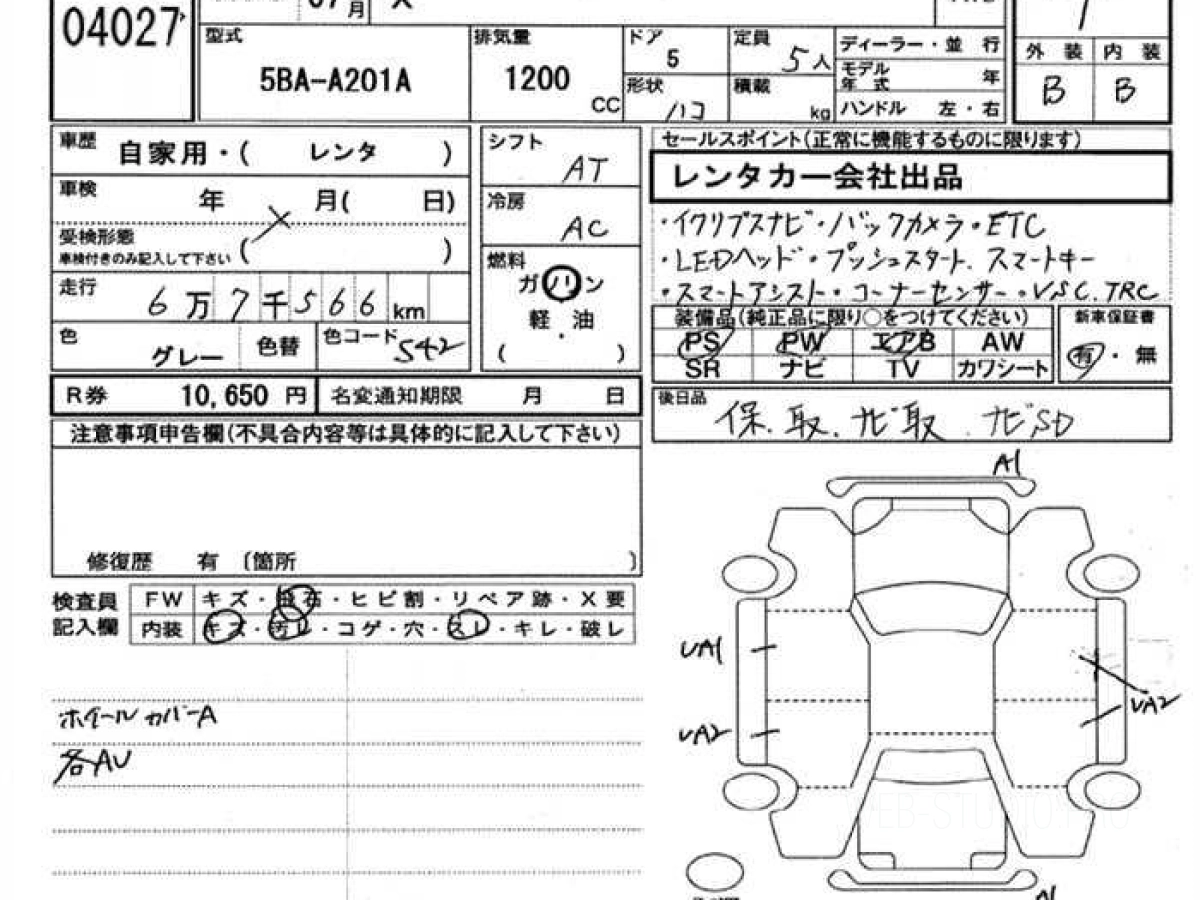 04027
07月 X
型式 5BA-A201A
排気量 1200 CC
ドア 5
形状 ハコ
定員 5人
積載 kg
ディーラー・並 行
モデル年式 年
ハンドル 左・右
外 装 内 装
B B
車歴 自家用・( レンタ )
車検 年 月( 日)
受検形態
車検付きのみ記入して下さい ( )
走行 6万7千566km
色 グレー 色替 色コード S42
シフト AT
冷房 AC
燃料
ガソリン
軽・油
( )
セールスポイント(正常に機能するものに限ります)
レンタカー会社出品
・イクリプスナビ・バックカメラ・ETC
・LEDヘッド・プッシュスタート.スマートキー
・スマートアシスト・コーナーセンサー・VSC.TRC
装備品(純正品に限り○をつけてください)
PS PW エアB AW
SR ナビ TV カワシート
新車保証書
有・無
後日品 保.取.ナビ取 ナビSD
R券 10,650 円 名変通知期限 月 日
注意事項申告欄(不具合内容等は具体的に記入して下さい)
修復歴 有 〔箇所 〕
検査員記入欄
FW キズ・飛石・ヒビ割・リペア跡・X要
内装 キズ・汚レ・コゲ・穴・スレ・キレ・破レ
ホイールカバーA
各AU
A1
UA1
UA2
UA2